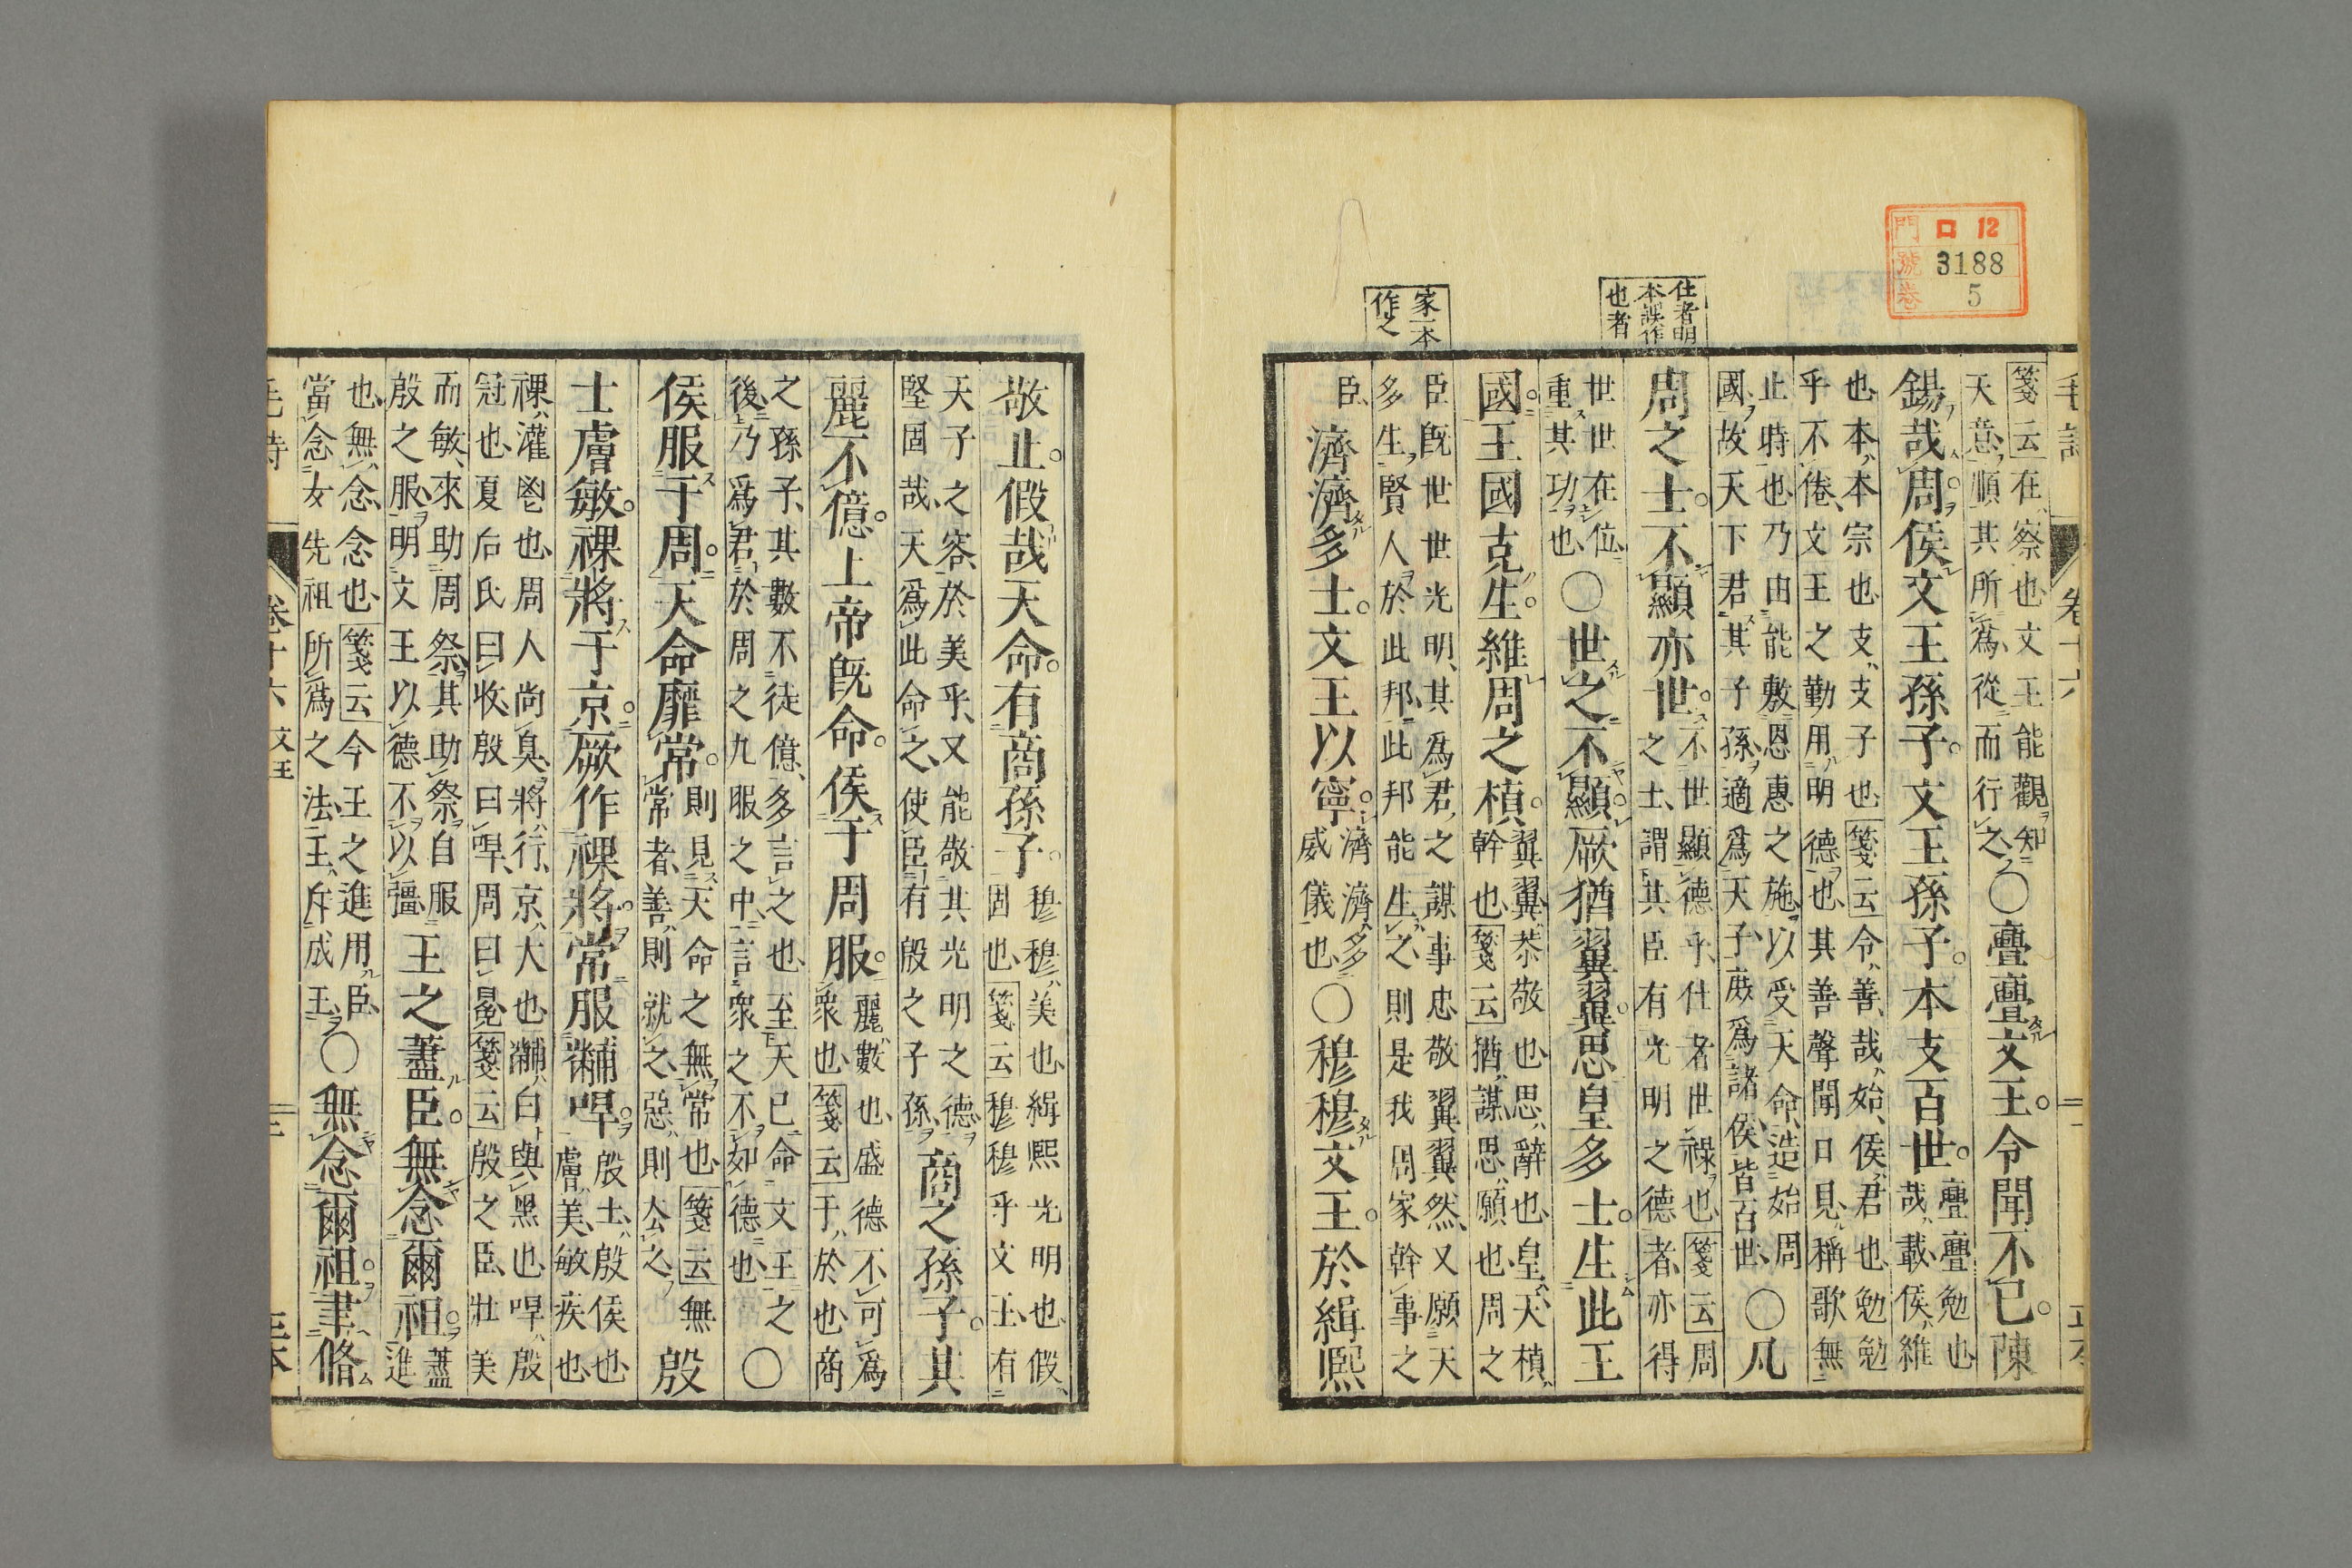 門 口 12
號 3188
卷 5
仕者明
本誤作
也者
家一本
作之
卷十六
箋云在察也文王能觀知
天意順其所爲從而行之
○亹亹文王令聞不已陳
錫哉周侯文王孫子文王孫子本支百世
亹亹勉也
哉載侯維
也本本宗也支支子也箋云令善哉始侯君也勉勉
乎不倦文王之勤用明德也其善聲聞日見稱歌無
止時也乃由能敷恩惠之施以受天命造始周
國故天下君其子孫適爲天子庶爲諸侯皆百世
○凡
周之士不顯亦世
不世顯德乎仕者世祿也箋云周
之士謂其臣有光明之德者亦得
世世在位
重其功也
○世之不顯厥猶翼翼思皇多士生此王
國王國克生維周之楨
翼翼恭敬也思辭也皇天楨
幹也箋云猶謀思願也周之
臣既世世光明其爲君之謀事忠敬翼翼然又願天
多生賢人於此邦此邦能生之則是我周家幹事之
臣
濟濟多士文王以寧
濟濟多
威儀也
○穆穆文王於緝熙
敬止假哉天命有商孫子
穆穆美也緝熙光明也假
固也箋云穆穆乎文王有
天子之容於美乎又能敬其光明之德
堅固哉天爲此命之使臣有殷之子孫
商之孫子其
麗不億上帝既命侯于周服
麗數也盛德不可爲
衆也箋云于於也商
之孫子其數不徒億多言之也至天已命文王之
後乃爲君於周之九服之中言衆之不如德也
○
侯服于周天命靡常
則見天命之無常也箋云無
常者善則就之惡則去之
殷
士膚敏祼將于京厥作祼將常服黼冔
殷士殷侯也
膚美敏疾也
祼灌鬯也周人尚臭將行京大也黼白與黑也冔殷
冠也夏后氏曰收殷曰冔周曰冕箋云殷之臣壯美
而敏來助周祭其助祭自服
殷之服明文王以德不以彊
王之藎臣無念爾祖
藎
進
也無念念也箋云今王之進用臣
當念女先祖所爲之法王斥成王
○無念爾祖聿脩
毛詩
卷十六
文王